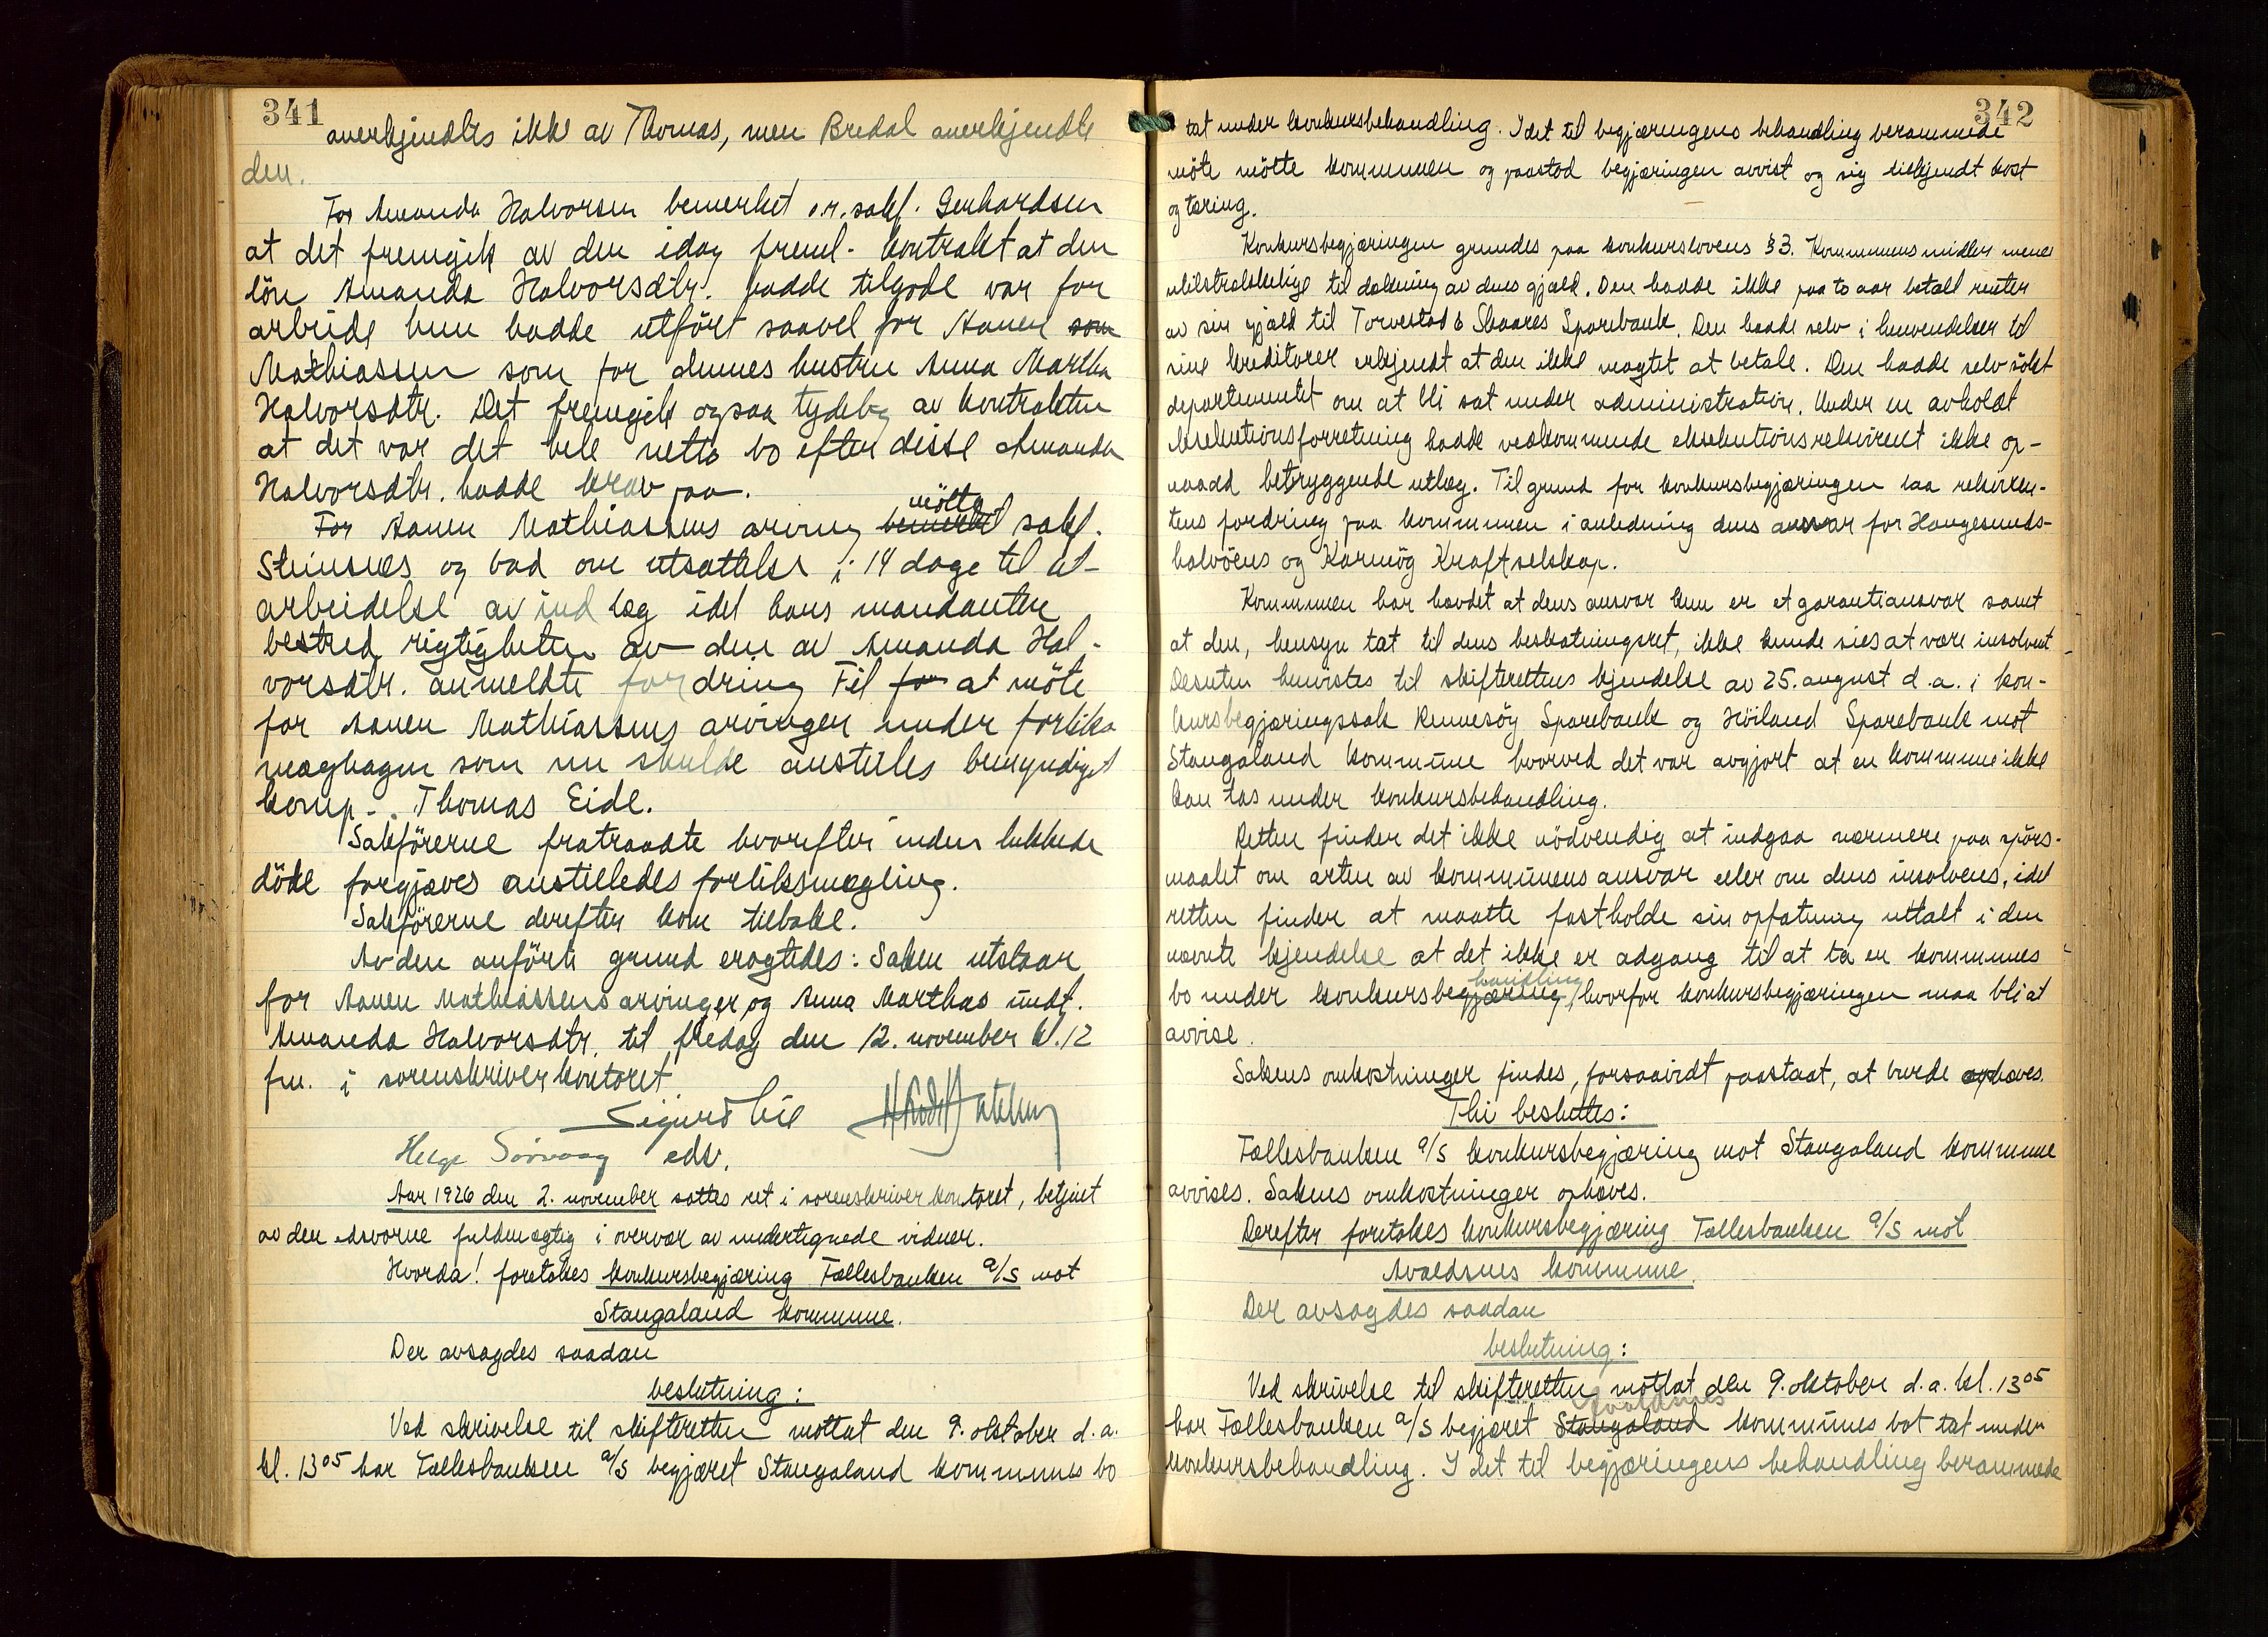 341
anerkjendtes ikke av Thomas, men Bredal anerkjendte
den.
For Amanda Halvorsen bemerket o.r.sakf. Gerhardsen
at det fremgik av den idag freml. kontrakt at den
lön Amanda Halvorsdtr. hadde tilgode var for
arbeide hun hadde utfört saavel for Aanen som
Mathiassen som for dennes hustru Anna Martha
Halvorsdtr. Det fremgik ogsaa tydelig av kontrakten
at det var det hele netto bo efter disse Amanda
Halvorsdtr. hadde krav paa.
For Aanen Mathiassens arving bemerket mötte sakf.
Steinsnes og bad om utsættelse i 14 dage til ut-
arbeidelse av indlæg idet hans mandanter
bestred rigtigheten av den av Amanda Hal-
vorsdtr. anmeldte fordring Til for at möte
for Aanen Mathiassens arvinger under forliks
mæglingen som nu skulde anstilles bemyndiget
komp. Thomas Eide.
Sakförerne fratraadte hvorefter inden lukkede
döre forgjæves anstilledes forliksmegling.
Sakförerne derefter kom tilbake.
Av den anförte grund eragtedes: Saken utstaar
for Aanen Mathiassens arvinger og Anna Marthas undt.
Amanda Halvorsdtr. til fredag den 12. november kl. 12
fm. i sorenskriverkontoret
Sigurd Lie
Helge Sörvaag edsv.
Aar 1926 den 2. november sattes ret i sorenskriverkontoret, betjent
av den edsvorne fuldmægtig i overvær av undertegnede vidner.
Hvorda! foretokes konkursbegjæring Fællesbanken a/s mot
Stangaland kommune.
Der avsagdes saadan
beslutning:
Ved skrivelse til skifteretten mottat den 9. oktober d.a.
kl. 13 05 har Fællesbanken a/s begjæret Stangaland kommunes bo
342
tat under konkursbehandling. I det til begjæringens behandling berammede
möte mötte kommunen og paastod begjæringen avvist og sig tilkjendt kost
og tæring.
Konkursbegjæringen grundes paa konkurslovens § 3. Kommunens midler menes
utilstrækkelige til dækning av dens gjæld. Den hadde ikke paa to aar betalt renter
av sin gjæld til Torvestad & Skaares Sparebank. Den hadde selv i henvendelser til
sine kreditorer erkjendt at den ikke magtet at betale. Den hadde selv sökt
departementet om at bli sat under administration. Under en avholdt
eksekutionsforretning hadde vedkommende eksekutionsrekvirent ikke op-
naadd betryggende utlæg. Til grund for konkursbegjæringen laa rekviren-
tens fordring paa kommunen i anledning dens ansvar for Haugesunds-
halvöens og Karmög Kraftselskap.
Kommunen har hævdet at dens ansvar kun er et garantiansvar samt
at den, hensyn tat til dens beskatningsret, ikke kunde sies at være insolvent
Desuten henvistes til skifterettens kjendelse av 25. august d.a. i kon-
kursbegjæringssak Rennesög Sparebank og Höiland Sparebank mot
Stangaland kommune hvorved det var avgjort at en kommune ikke
kan tas under konkursbehandling.
Retten finder det ikke nödvendig at indgaa nærmere paa spörs-
maalet om arten av kommunens ansvar eller om dens insolvens, idet
retten finder at maatte fastholde sin opfatning uttalt i den
nævnte kjendelse at det ikke er adgang til at ta en kommunes
bo under konkursbegjæring handling, hvorfor konkursbegjæringen maa bli at
avvise.
Sakens omkostninger findes, forsaavidt paastaat, at burde ophæves.
Thi besluttes:
Fællesbanken a/s konkursbegjæring mot Stangaland kommune
avvises. Sakens omkostninger ophæves.
Derefter foretokes konkursbegjæring Fællesbanken a/s mot
Avaldsnes kommune.
Der avsagdes saadan
beslutning:
Ved skrivelse til skifteretten mottat den 9. oktober d.a. kl. 13 05
har Fællesbanken a/s begjæret Stangaland Avaldsnes kommunes bo tat under
konkursbehandling. I det til begjæringens behandling berammede